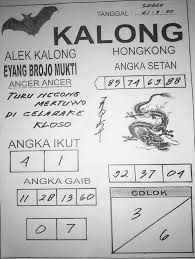 TANGGAL :
KALONG
ALEK KALONG
HONGKONG
EYANG BROJO MUKTI
ANGKA SETAN
ANCER ANCER
85 74 69 88
TURU NGCOMB
MERTUWO
DI CELARAKE
KLOSO
ANGKA IKUT
4 1
ANGKA GAIB
11 28 13 60
32 37 04
COLOK
0 7
3
6